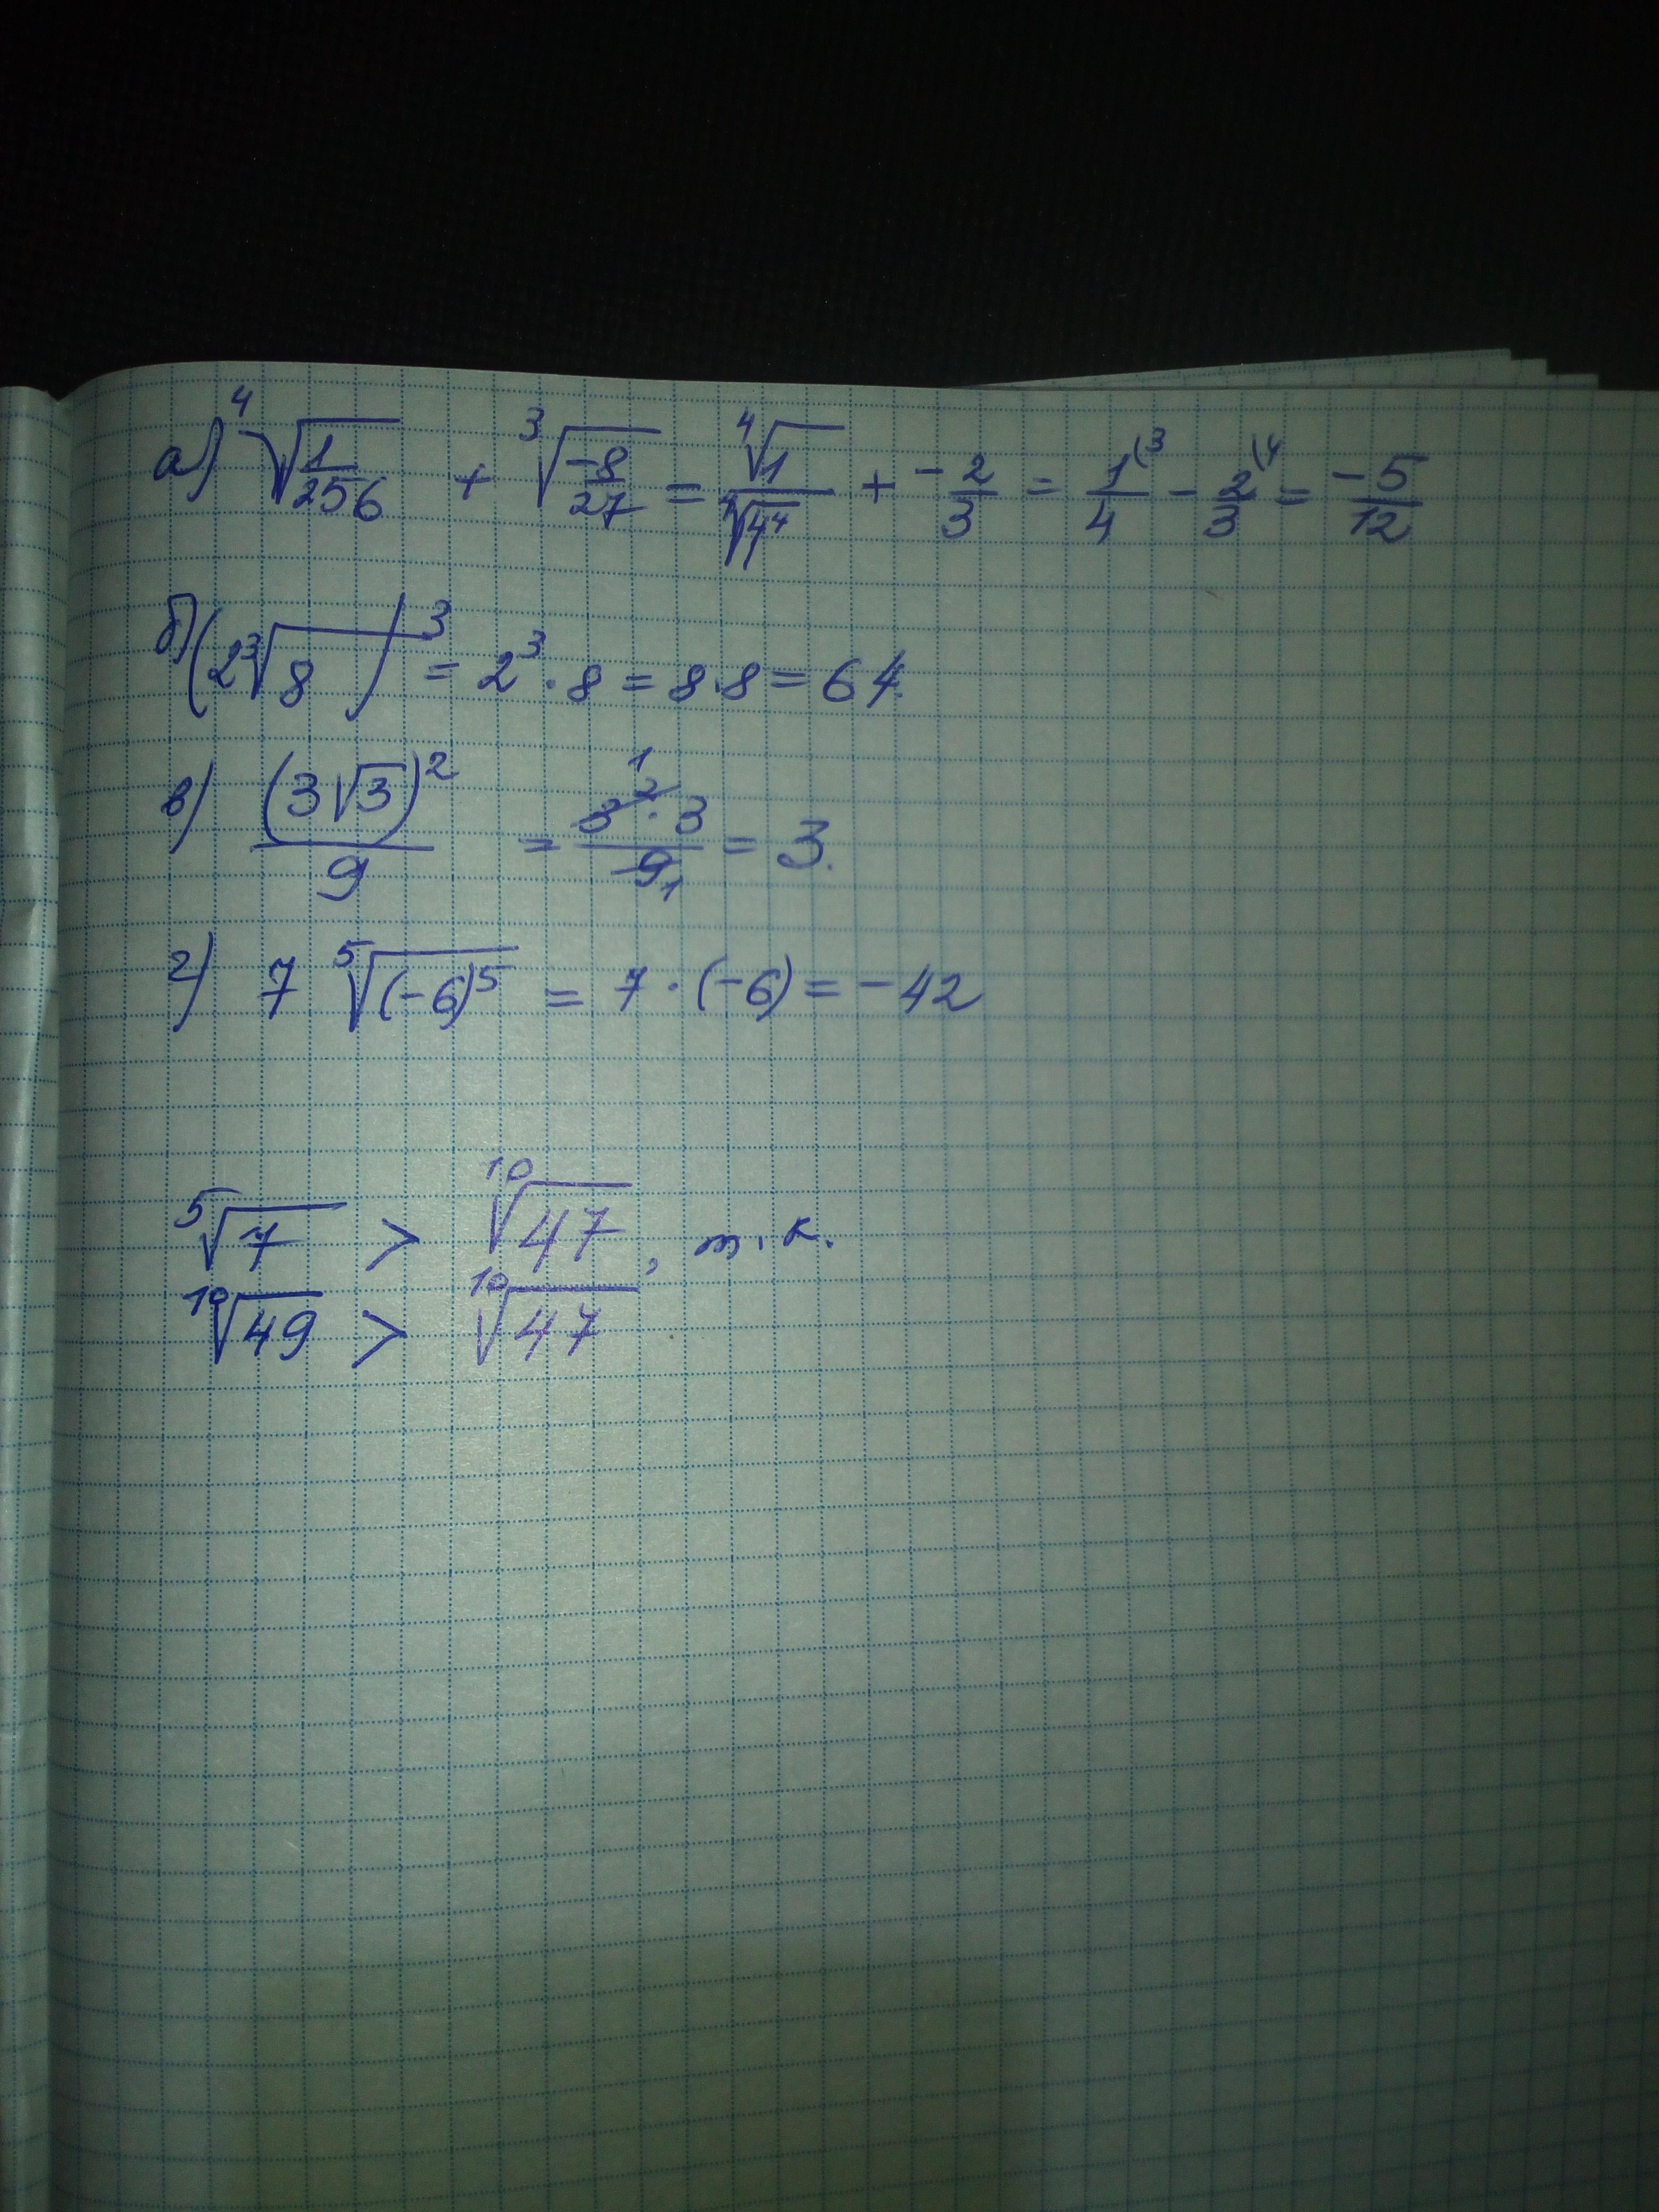 а) ⁴√(1/256) + ³√(-8/27) = ⁴√1/⁴√4⁴ + -2/3 = 1⁽³/4 - 2⁽⁴/3 = -5/12
б) (2³√8)³ = 2³ · 8 = 8 · 8 = 64.
в) (3√3)²/9 = 3² · 3/9 = 3.
г) 7 ⁵√(-6)⁵ = 7 · (-6) = -42
⁵√7 > ¹⁰√47, т.к.
¹⁰√49 > ¹⁰√47